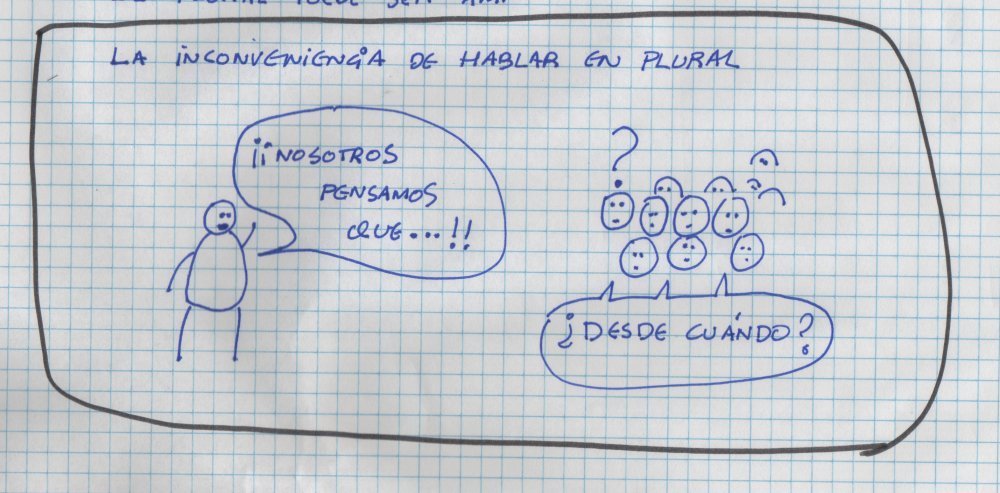 LA INCONVENIENCIA DE HABLAR EN PLURAL
¡¡NOSOTROS
PENSAMOS
QUE...!!
?
¿DESDE CUÁNDO?